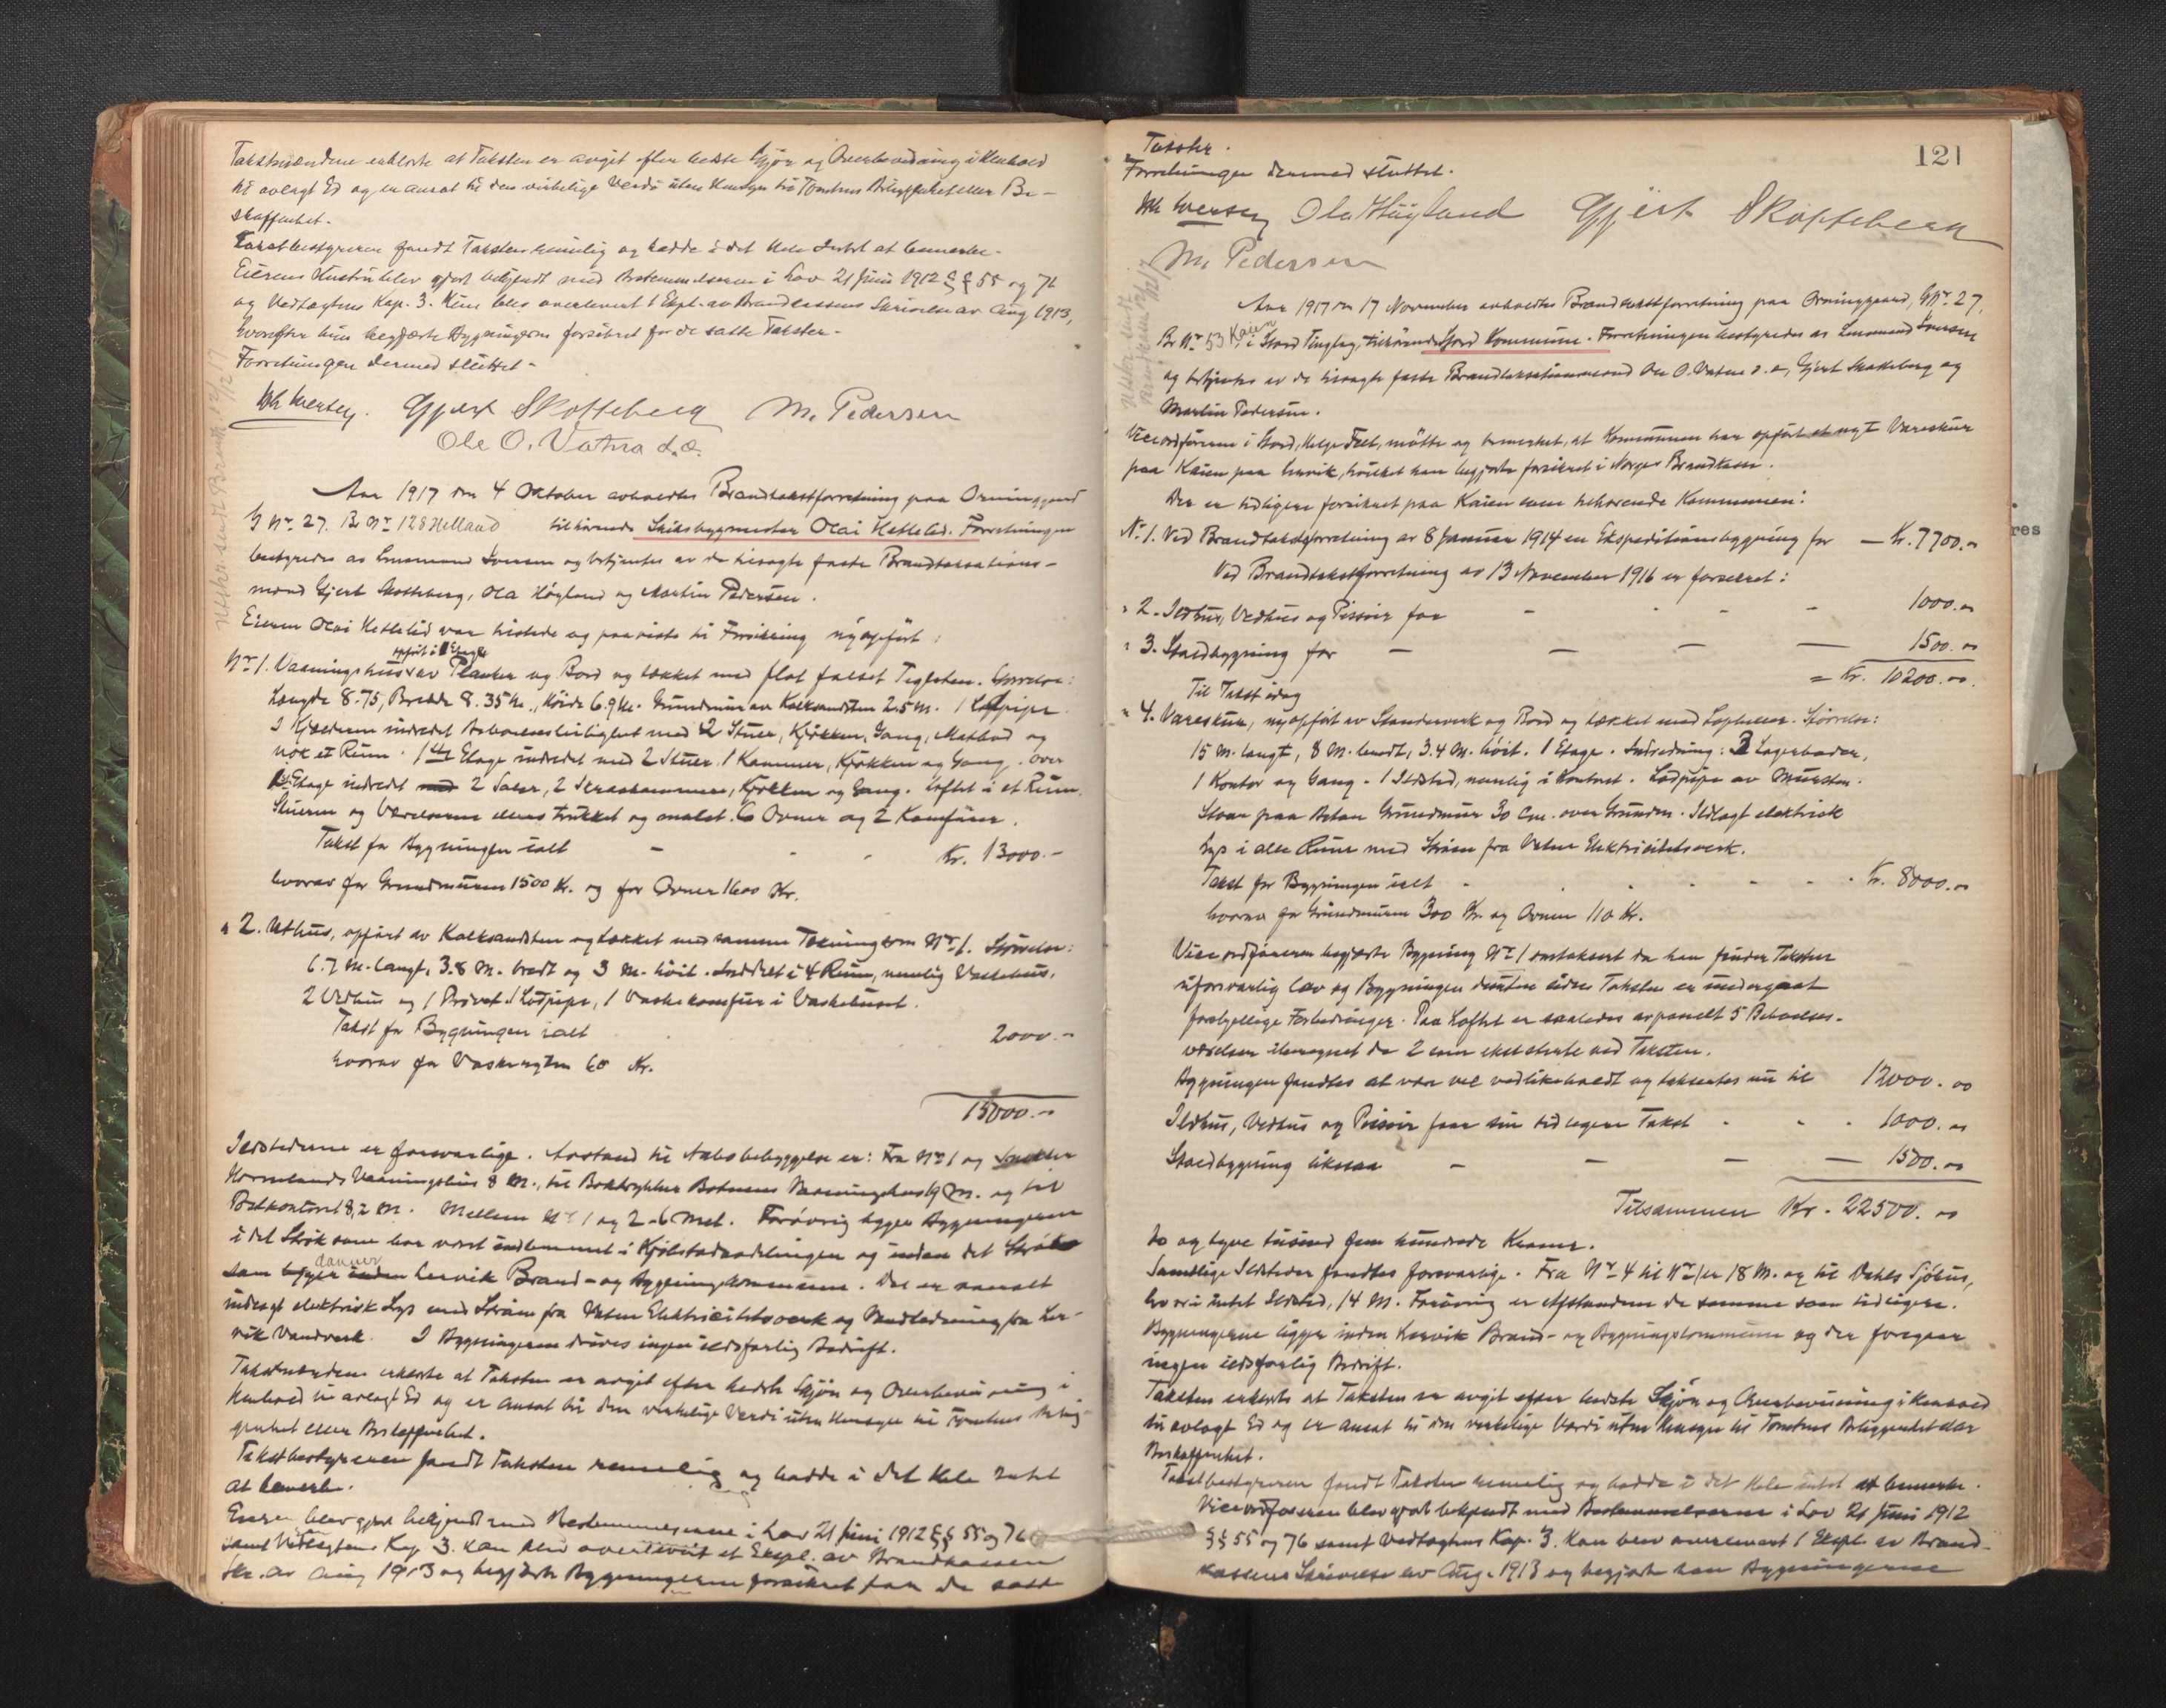 Takstmændene erklærte at Taksten er avgit efter bedste Skjøn og Overbevisning i Henhold
til avlagt Ed og er ansat til den virkelige Verdi uten Hensyn til Tomtens Beliggenhet eller Be-
skaffenhet.
Takstbestyreren fandt Taksten rimelig og hadde i det Hele Intet at bemerke.
Eierens Hustru blev gjort bekjendt med Bestemmelserne i Lov 21 Juni 1912 §§ 55 og 76
og Vedtægtens Kap. 3. Hun blev overlevert 1 Ekpl. av Brandkassens Skrivelse av Aug 1913,
hvorefter hun begjærte Bygningerne forsikret for de satte Takster.
Forretningen dermed sluttet.
Joh Iversen. Gjert Skotteberg M. Pedersen
Ole O. Vatna d.æ.
Utskr. sendt Brandk 12/12 17
Aar 1917 den 4 Oktober avholdtes Brandtakstforretning paa Orninggaard
G Nr. 27. Br Nr 128 Helland tilhørende Skibsbygmester Olai Hettelid. Forretningen
bestyredes av Lensmand Iversen og betjentes av de tiltagte faste Brandtaksations-
mænd Gjert Skotteberg, Ola Høyland og Martin Pedersen.
Eieren Olai Hettelid var tilstede og paaviste til Forsikring nyopført:
opført i 1 Etage
Nr 1. Vaaningshus av Planker og Bord og tækket med flat falset Teglsten. Størrelse:
Længde 8.75, Bredde 8.35 M., Høide 6.9 M. Grundmur av Kalksandsten 2.5 M. 1 Lodpipe
I Kjælderen indredet Beboelsesleilighet med 2 Stuer, Kjøkken, Gang, Matbod og
nok et Rum. 1ste Etage indredet med 2 Stuer, 1 Kammer, Kjøkken og Gang. Over
1ste Etage indredet med 2 Saler, 2 Skraakammere, Kjøkken og Gang. Loftet i et Rum.
Stuerne og Værelserne ellers trukket og malet. 6 Ovner og 2 Komfurer.
Takst for Bygningen ialt - - - Kr. 13000.-
hvorav for Grundmuren 1500 Kr. og for Ovner 1600 Kr.
" 2. Uthus, opført av Kalksandsten og tækket med samme Tækning som Nr. 1. Størrelse:
6.7 M. langt, 3.8 M. bredt og 3 M. høit. Inddelt i 4 Rum, nemlig Vaskehus,
2 Vedhus og 1 Privet. 1 Lodpipe, 1 Vaskekomfur i Vaskehuset.
Takst for Bygningen ialt 2000.-
hvorav for Vaskegryten 60 Kr.
15000.-
Ildstederne er forsvarlige. Avstand til Nabobebyggelse er: Fra Nr 1 og Snekker
Hornelands Vaaningshus 8 M., til Boktrykker Botnens Vaaningshus 19 M. og til
Postkontoret 8,2 M. Mellem Nr 1 og 2 - 6 Met. Forøvrig ligger Bygningerne
i det Strøk som har været indlemmet i Kjølstadsavdelingen og inden det Strøk
danner
som ligger inden Lervik Brand- og Bygningskommune. Det er overalt
indlagt elektrisk Lys med Strøm fra Vatna Elektricitetsverk og Vandledning fra Ler-
vik Vandverk. I Bygningerne drives ingen ildsfarlig Bedrift.
Takstmændene erklærte at Taksten er avgit efter bedste Skjøn og Overbevisning i
Henhold til avlagt Ed og er ansat til den virkelige Verdi uten Hensyn til Tomtens Belig-
genhet eller Beskaffenhet.
Takstbestyreren fandt Taksten rimelig og hadde i det Hele Intet
at bemerke.
Eieren blev gjort bekjendt med Bestemmelserne i Lov 21 Juni 1912 §§ 55 og 76
samt Vedtægtens Kap 3. Han blev overlevert et Ekspl. av Brandkassens
Skr. av Aug 1913 og begjærte Bygningerne forsikret for de satte
121
Takster.
Forretningen dermed sluttet.
Joh Iversen Ola Høyland Gjert Skotteberg
M. Pedersen
Utskr. sendt Brandkassen 12/12 17
Aar 1917 den 17 November avholdtes Brandtakstforretning paa Orninggaard, G Nr. 27,
Br Nr 53 Kaien i Stord Tinglag, tilhørende Stord Kommune. Forretningen bestyredes av Lensmand Iversen
og betjentes av de tiltagte faste Brandtaksationsmænd Ole O. Vatna d.æ., Gjert Skotteberg og
Martin Pedersen.
Viceordføreren i Stord, Helge Tveit, møtte og bemerket, at Kommunen har opført et nyt Vareskur
paa Kaien paa Lervik, hvilket han begjærte forsikret i Norges Brandkasse.
Der er tidligere forsikret paa Kaien som tilhørende Kommunen:
Nr. 1. Ved Brandtakstforretning av 8 Januar 1914 en Ekspeditionsbygning for - Kr. 7700.00
Ved Brandtakstforretning av 13 November 1916 er forsikret:
" 2. Ildhus, Vedhus og Pissoir for - - - - 1000.00
" 3. Staldbygning for - - - - 1500.00
= Kr. 10200.00
Til Takst idag
" 4. Vareskur, nyopført av Standerverk og Bord og tækket med Tapheller. Størrelse:
15 M. langt, 8 M. bredt, 3.4 M. høit. 1 Etage. Indredning: 2 Lagerboder,
1 Kontor og Gang. 1 Ildsted, nemlig i Kontoret. Lodpipe av Mursten.
Staar paa Beton Grundmur 30 Cm. over Grunden. Indlagt elektrisk
Lys i alle Rum med Strøm fra Vatna Elektricitetsverk.
Takst for Bygningen ialt - - - - Kr. 8000.00
hvorav for Grundmuren 300 Kr. og Ovnen 110 Kr.
Viceordføreren begjærte Bygning Nr 1 omtaksert da han finder Taksten
uforsvarlig lav og Bygningen desuten siden Taksten er undergaat
forskjellige Forbedringer. Paa Loftet er saaledes avpanelt 5 Beboelses-
værelser iberegnet de 2 som eksisterte ved Taksten.
Bygningen fandtes at være vel vedlikeholdt og takseres nu til 12000.00
Ildhus, Vedhus og Pissoir faar sin tidligere Takst - - - 1000.00
Staldbygning likesaa - - - - 1500.00
Tilsammen Kr. 22500.00
to og tyve tusind fem hundrede Kroner.
Samtlige Ildsteder fandtes forsvarlige. Fra Nr 4 til Nr 1 er 18 M. og til Dahls Sjøhus,
hvori intet Ildsted, 14 M. Forøvrig er Afstandene de samme som tidligere.
Bygningerne ligger inden Lervik Brand- og Bygningskommune og der foregaar
ingen ildsfarlig Bedrift.
Taksten erklærte at Taksten er avgit efter bedste Skjøn og Overbevisning i Henhold
til avlagt Ed og er ansat til den virkelige Værdi uten Hensyn til Tomtens Beliggenhet eller
Beskaffenhet.
Takstbestyreren fandt Taksten rimelig og hadde i det Hele intet at bemerke.
Viceordføreren blev gjort bekjendt med Bestemmelserne i Lov 21 Juni 1912
§§ 55 og 76 samt Vedtægtens Kap. 3. Han blev overlevert 1 Ekspl. av Brand-
kassens Skrivelse av Aug. 1913 og begjærte han Bygningerne
res